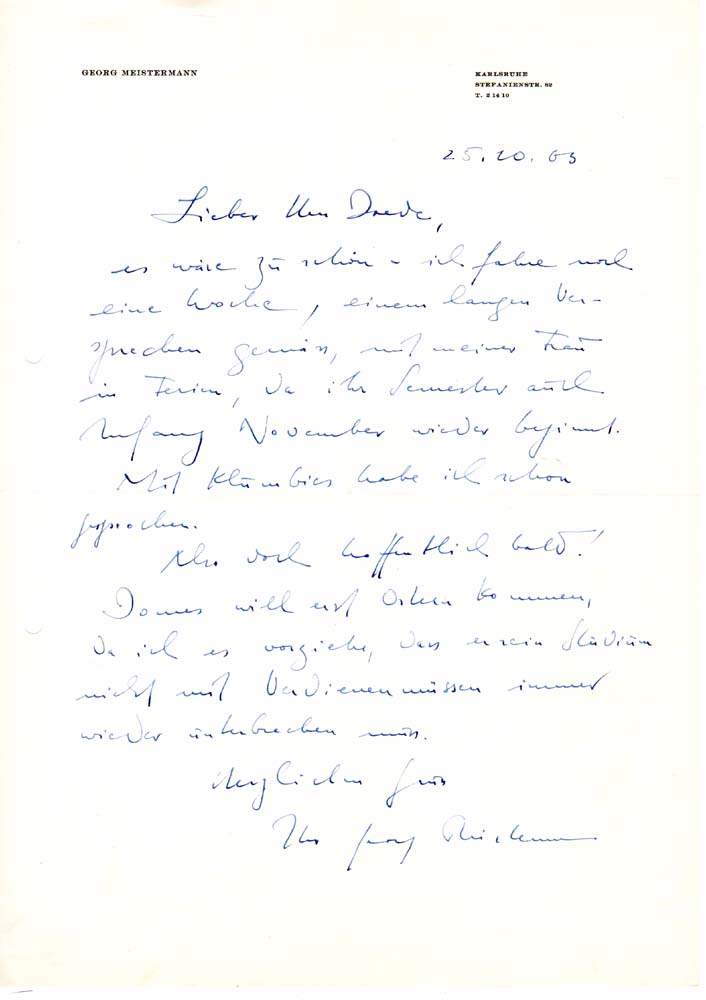 GEORG MEISTERMANN
KARLSRUHE
STEFANIENSTR. 82
T. 2 14 10
25.10.63
Lieber Herr Doede,
es wäre zu schön – ich fahre noch
eine Woche, einem langen Ver-
sprechen gemäss, mit meiner Frau
in Ferien, da ihr Semester auch
Anfang November wieder beginnt.
Mit Klumbies habe ich schon
gesprochen.
Also doch hoffentlich bald!
Domes will erst Ostern kommen,
da ich es vorziehe, dass er sein Studium
nicht mit Verdienenmüssen immer
wieder unterbrechen muss.
Herzlichen Gruss
Ihr Georg Meistermann